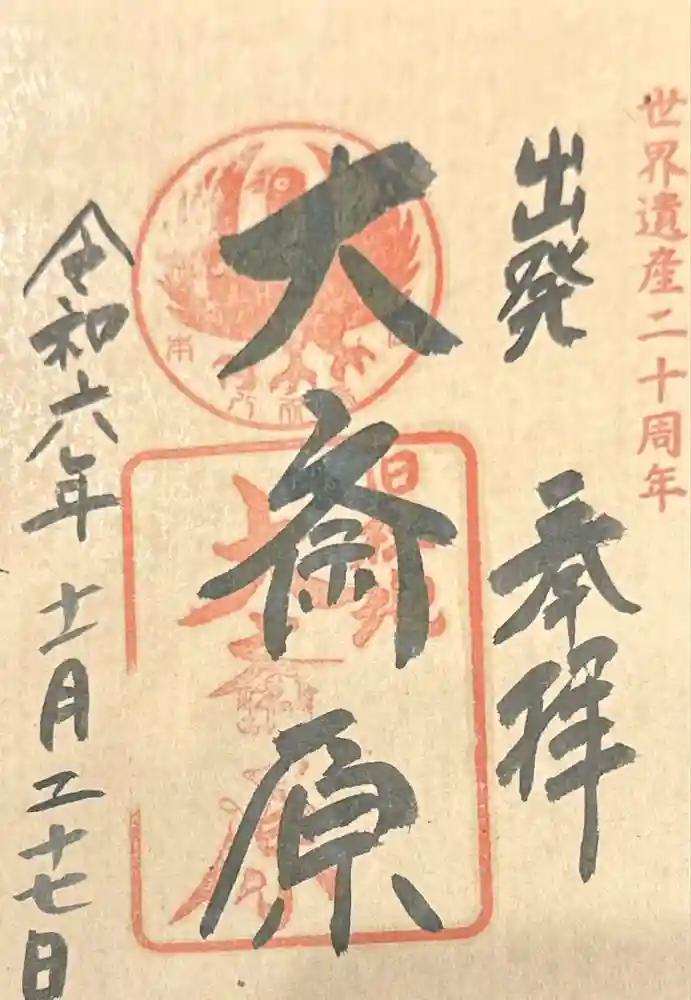 世界遺産二十周年
出発 奉拝
大斎原
旧社地
大斎原
令和六年十一月二十七日